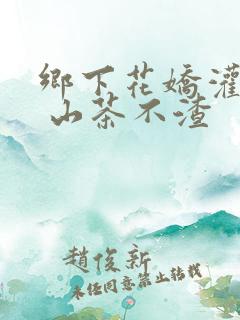 鄉下花嬌灌
山茶不渣
趙俊新
未经同意禁止转载